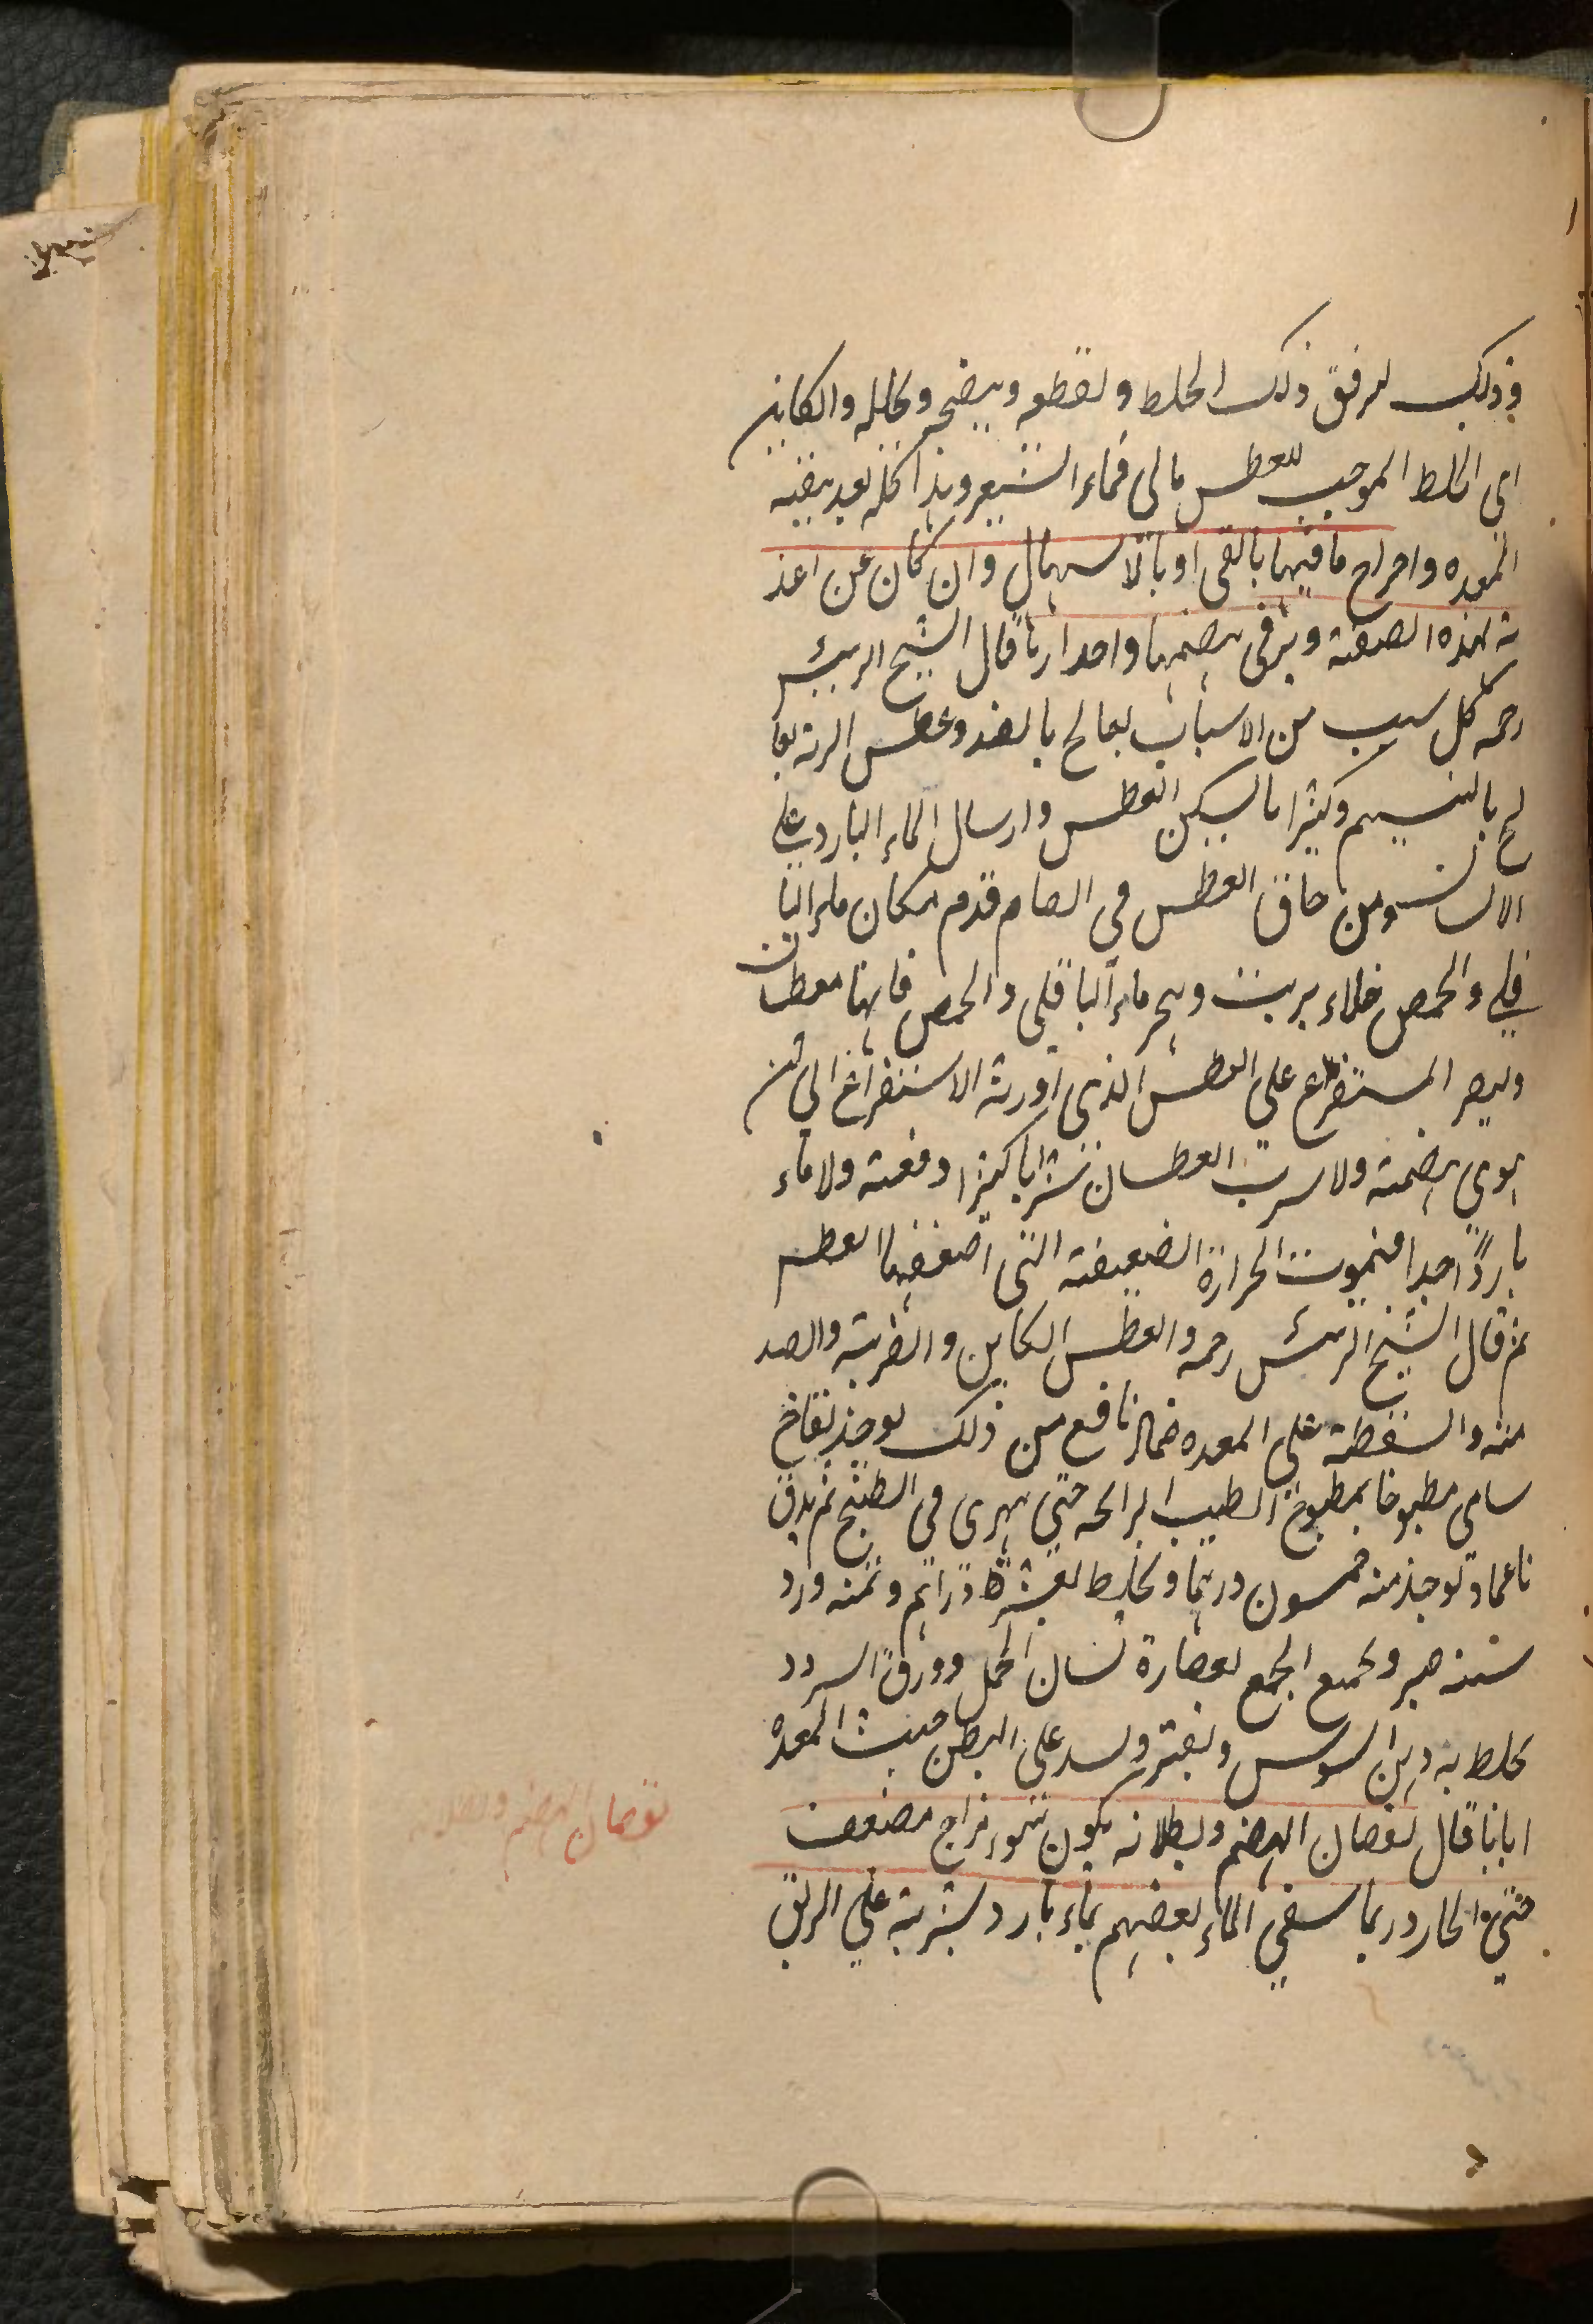 وذلك لىرقق ذلك الخلط ولقطعه وينضجه ويحلله والكاين
اى الخلط الموجب للعطش مالى فماء الشعير وهذا كله بعد ينقيه
المعده واخراج ما فيها بالقى او بالاسهال وان كان عن اغذ
ية بهذه الصفة ويرقى بهضمها واحدارها قال الشيخ الرييس
رحمه كل سبب من الاسباب يعالج بالضد وعطش الرية يعا
لج بالنسيم وكثيرا ما يسكن العطش وارسال الماء البارد على
اللسان ومن خاف العطش فى الصيام قدم مكان ماء البا
قلى والحمص خلاء بزيت وهجر ماء الباقلى والحمص فانهما معطشان
وليصبر المستفرغ على العطش الذى اورثه الاستفراغ الى ان
يقوى هضمه ولا يشرب العطشان شرابا كثيرا دفعة ولا ماء
باردا جدا فيموت الحرارة الضعيفة التى اضعفها العطش
ثم قال الشيخ الرييس رحمه والعطش الكاين والضربة والصد
منه والسقطة على المعده ضماد نافع من ذلك يوخذ تفاح
شامى مطبوخا بمطبوخ الطيب الرائحه حتى يهرى فى الطبخ ثم يدق
ناعما ويوخذ منه خمسون درهما ويخلط بعشرة دراهم ومنه ورد
ستة صبر ويجمع الجمع بعصارة لسان الحمل وورق السرو و
يخلط به دهن السوسن ويفتر ويشد على البطن حيث المعدة
اياما قال نقصان الهضم وبطلانه يكون لسوء مزاج مضعف
حتى الحار وربما يسقى الماء بعضهم بماء بارد يشربه على الريق
نقصان الهضم وبطلانه